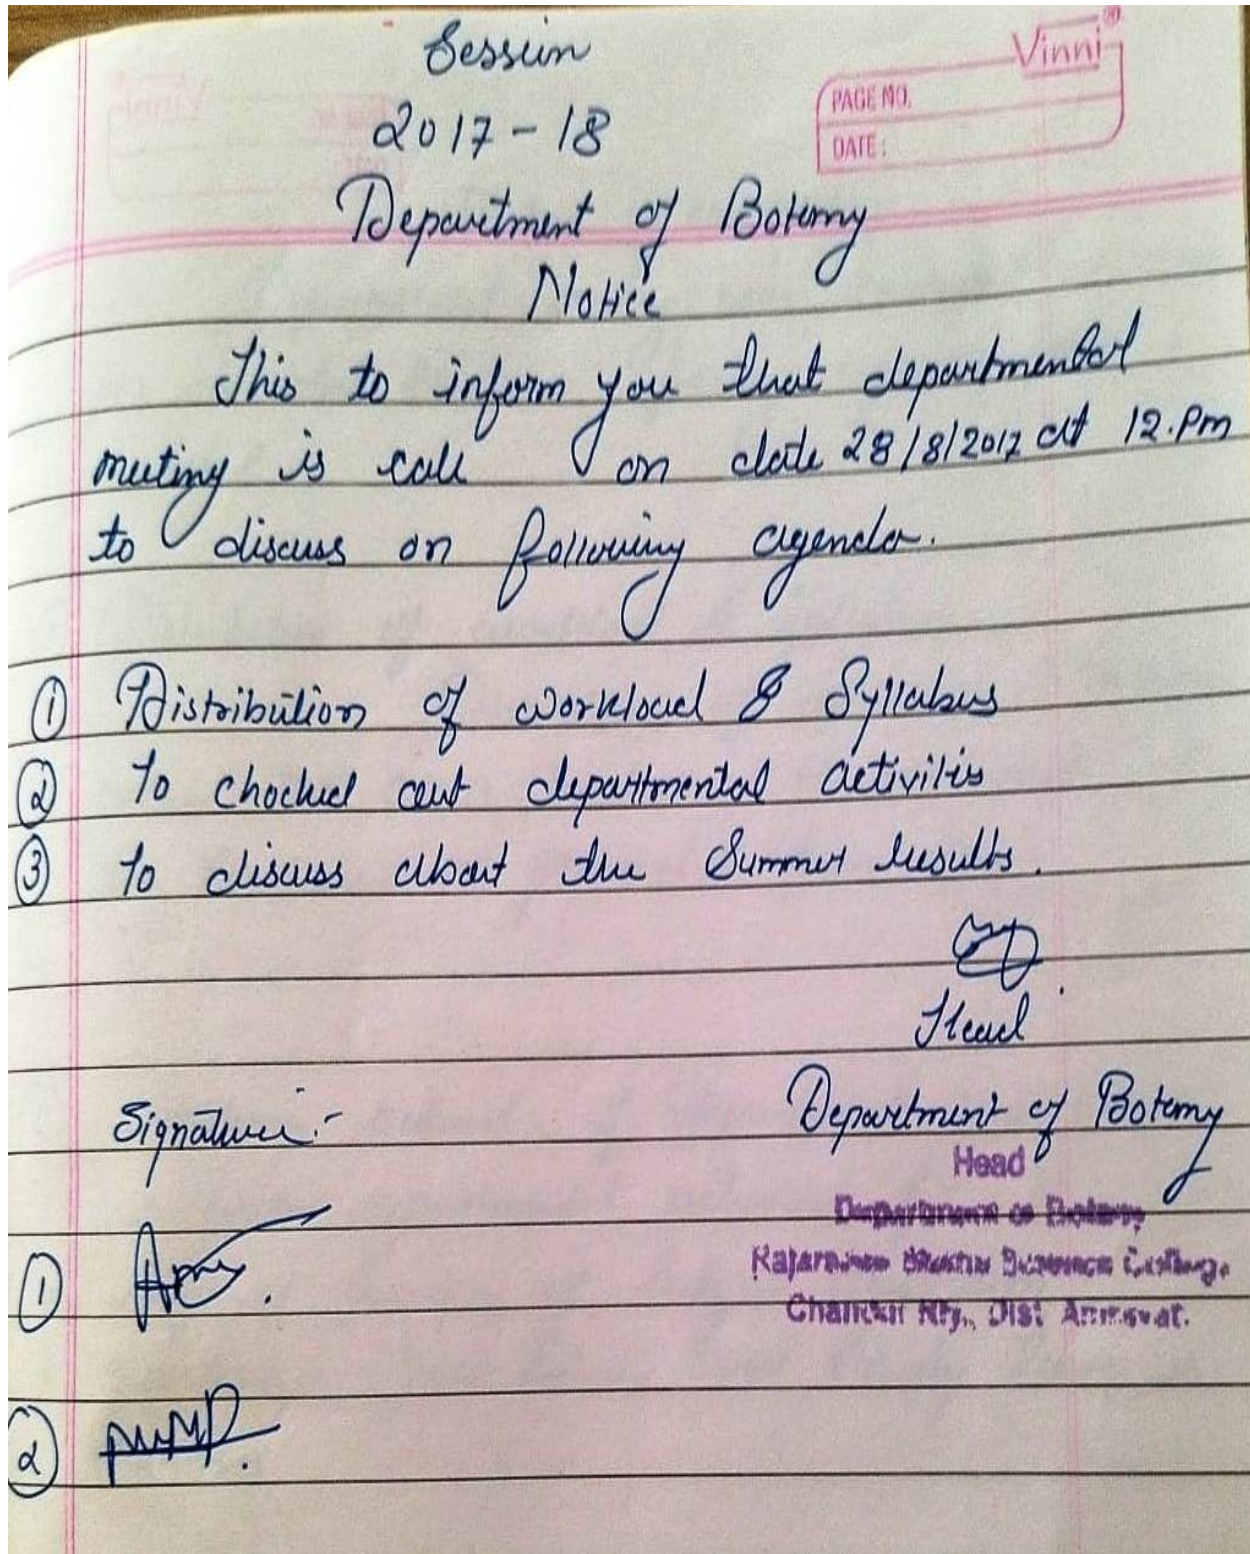 Session
2017-18
Vinni®
PAGE NO.
DATE:
Department of Botany
Notice
This to inform you that departmental
meeting is call on date 28/8/2017 at 12.Pm
to discuss on following agenda.
① Distribution of workload & Syllabus
② To chocked out departmental activitis
③ To discuss about the Summer results.
Head
Signature:-
Department of Botany
Head
Department of Botany
Science College,
Chandur Rly., Dist. Amravat.
①
②